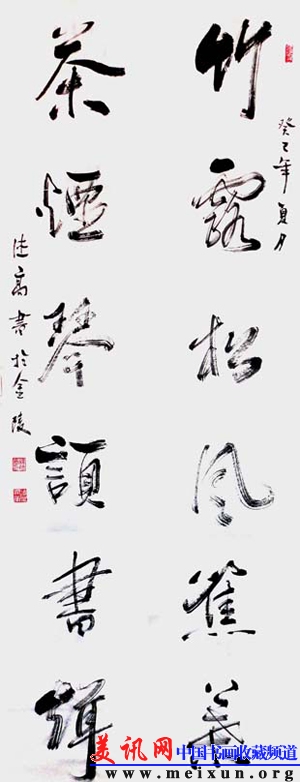 癸巳年夏月
竹露松风蕉雨
茶煙琴韻書聲
高書於金陵
美讯网 中国书画收藏频道
www.meixun.org